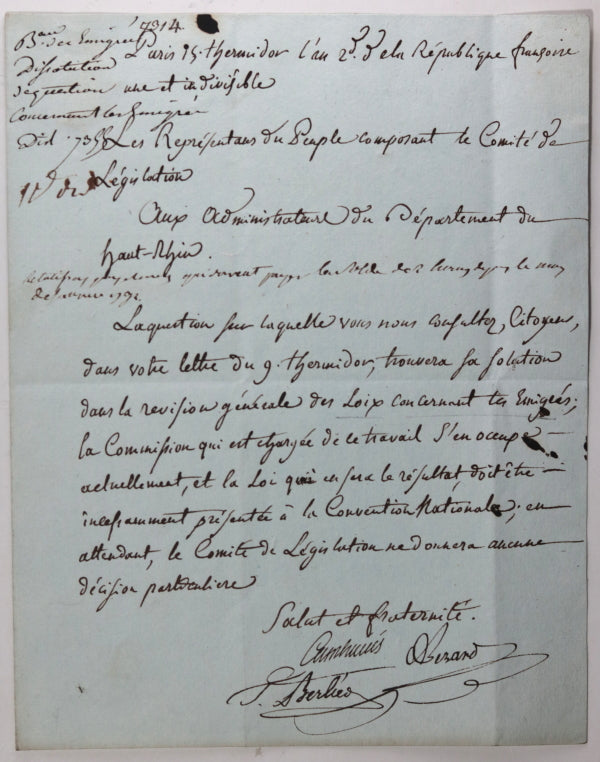 7314
Bau des Emigrés
Paris 15. thermidor l'an 2d. de la République françoise
une et indivisible
question
concernant les Emigrés
Les Représentans du Peuple composant le Comité de
Législation
Aux Administrateurs du Département du
haut-Rhin.
qui doivent payer la solde de
La question sur laquelle vous nous consultez, Citoyens,
dans votre lettre du 9. thermidor, trouvera sa solution
dans la revision générale des Loix concernant les Emigrés;
la Commission qui est chargée de ce travail s'en occupe
actuellement, et la Loi qui en sera le résultat, doit être
incessamment présentée à la Convention Nationale; en
attendant, le Comité de Législation ne donnera aucune
décision particuliere
Salut et fraternité.
Cambacérés Bezard
T. Berlier